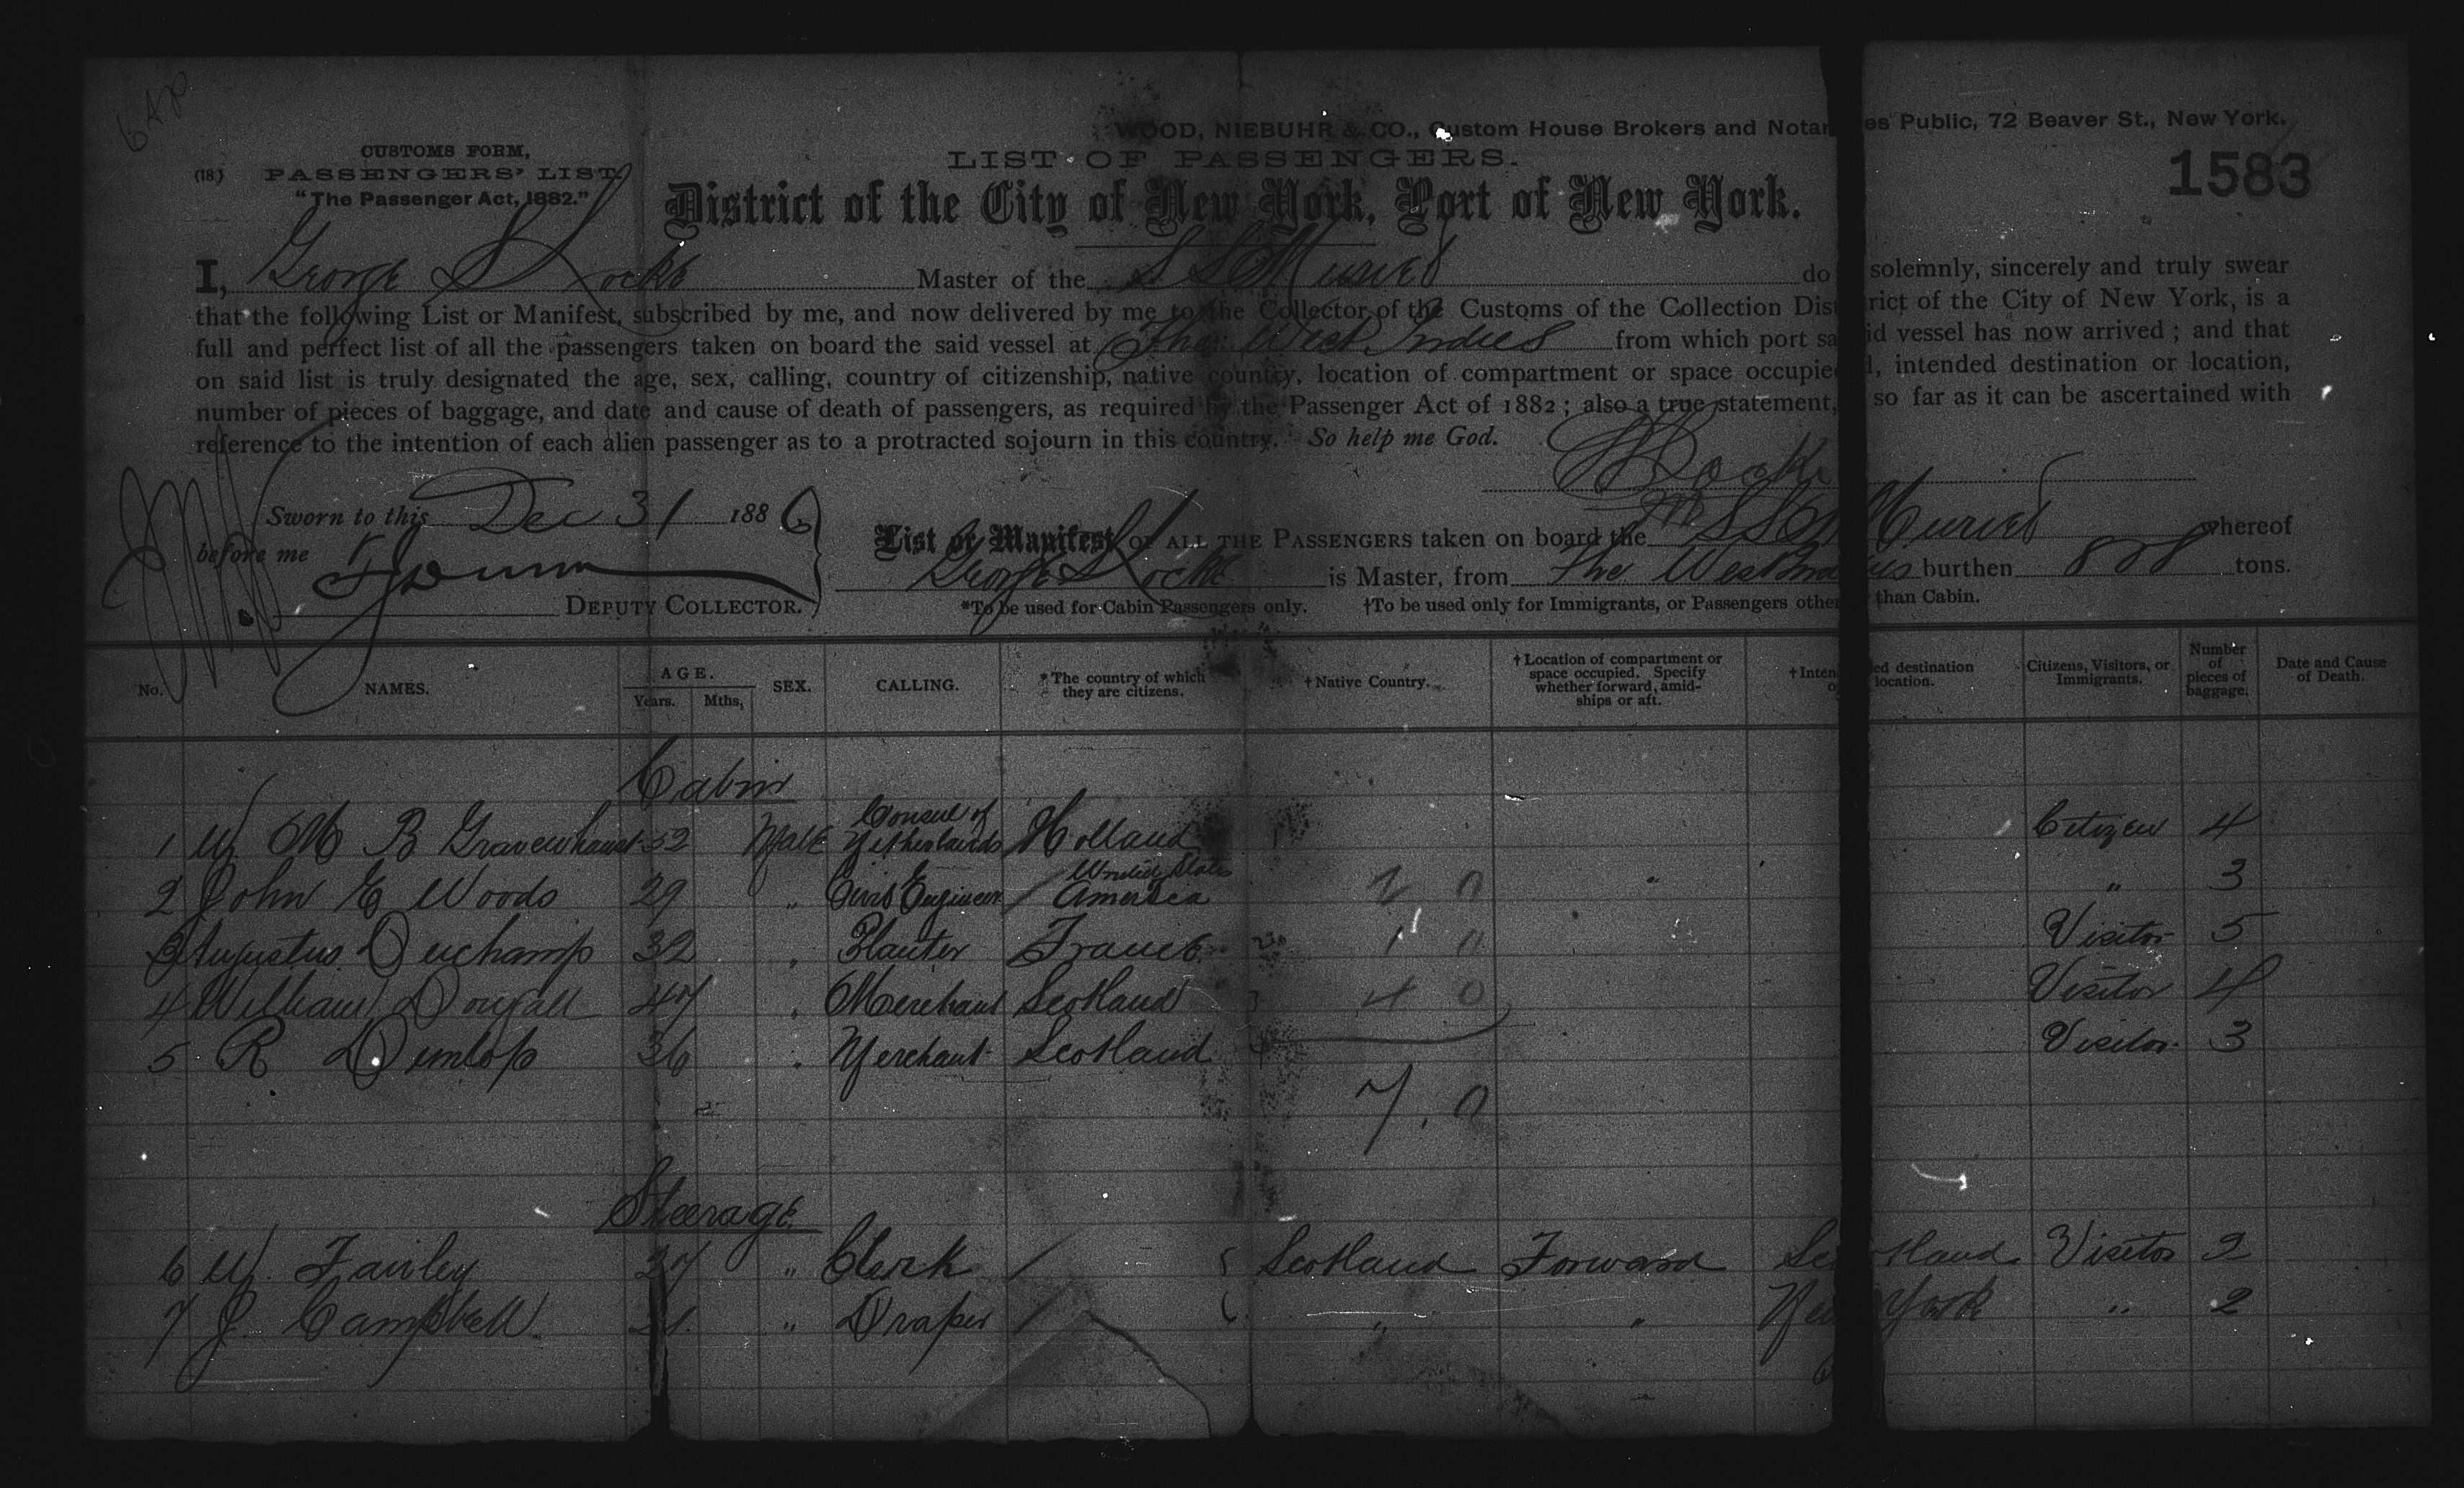 WOOD, NIEBUHR & CO., Custom House Brokers and Notaries Public, 72 Beaver St., New York.
CUSTOMS FORM,
(18) PASSENGERS' LIST
"The Passenger Act, 1882."
LIST OF PASSENGERS.
1583
District of the City of New York, Port of New York.
I, George S Locke Master of the S S Muriel do solemnly, sincerely and truly swear
that the following List or Manifest, subscribed by me, and now delivered by me to the Collector of the Customs of the Collection District of the City of New York, is a
full and perfect list of all the passengers taken on board the said vessel at The West Indies from which port said vessel has now arrived; and that
on said list is truly designated the age, sex, calling, country of citizenship, native country, location of compartment or space occupied, intended destination or location,
number of pieces of baggage, and date and cause of death of passengers, as required by the Passenger Act of 1882; also a true statement, so far as it can be ascertained with
reference to the intention of each alien passenger as to a protracted sojourn in this country. So help me God.
Locke
Sworn to this Dec 31 1886
before me
DEPUTY COLLECTOR.
List or Manifest OF ALL THE PASSENGERS taken on board the SS Muriel whereof
George S Locke is Master, from The West Indies burthen 808 tons.
*To be used for Cabin Passengers only. †To be used only for Immigrants, or Passengers other than Cabin.
No. NAMES. AGE. Years. Mths, SEX. CALLING. *The country of which they are citizens. †Native Country. †Location of compartment or space occupied. Specify whether forward, amidships or aft. †Intended destination or location. Citizens, Visitors, or Immigrants. Number of pieces of baggage. Date and Cause of Death.
Cabin
1 W M B Gravenhorst 52 Male Consul of Netherlands Holland Citizen 4
2 John E Woods 29 " Civil Engineer United States America " 3
3 Augustus Duchamp 32 " Planter France Visitor 5
4 William Dougall 47 " Merchant Scotland 4 0 Visitor 4
5 R Dunlop 36 " Merchant Scotland Visitor 3
7. 0
Steerage
6 W. Fairley 27 " Clerk Scotland Forward Scotland Visitor 2
7 J. Campbell 21 " Draper " " New York " 2